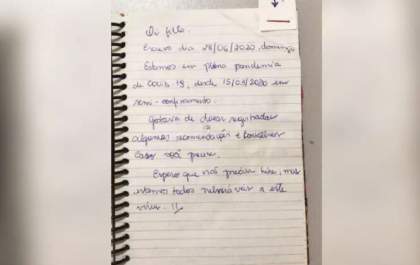 Oi filho.
Escrevo dia 28/06/2020, domingo
Estamos em plena pandemia
de COVID 19, desde 15/03/2020 em
semi-confinamento.
Gostava de deixar registradas
algumas recomendações e conselhos
caso seja preciso.
Espero que não precise, mas
estamos todos vulneráveis a este
vírus. !!